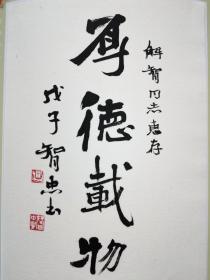 解智同志惠存
厚德載物
戊子智忠书